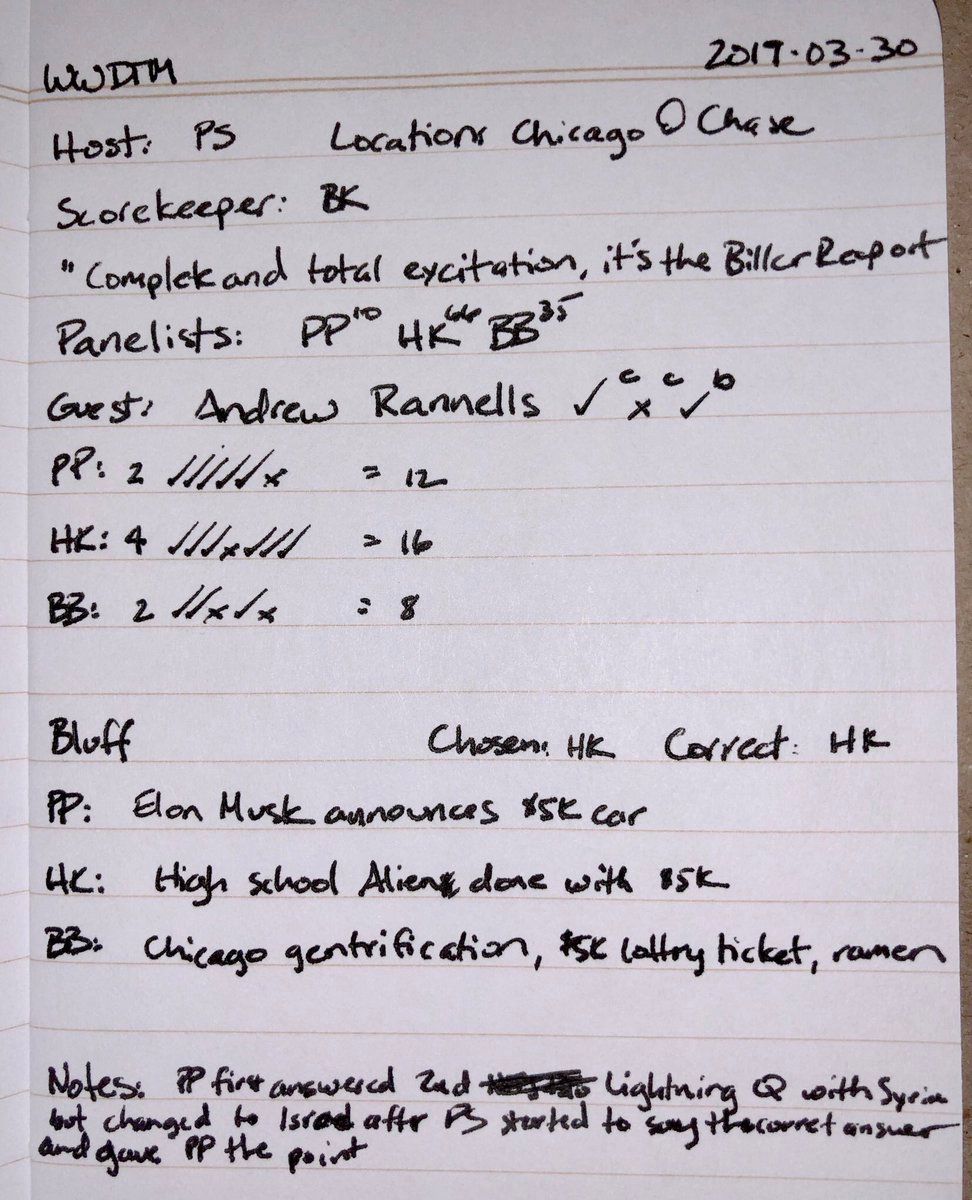 WWDTM 2019-03-30
Host: PS Location: Chicago @ Chase
Scorekeeper: BK
"Complete and total excitation, it's the Biller Raport
Panelists: PP 10 HK 44 BB 35
Guest: Andrew Rannells ✓ c x c ✓ b
PP: 2 ✓✓✓✓✓x = 12
HK: 4 ✓✓✓x✓✓✓ = 16
BB: 2 ✓✓x✓x = 8
Bluff Chosen: HK Correct: HK
PP: Elon Musk announces $5K car
HK: High school Alien done with $5K
BB: Chicago gentrification, $5K lottry ticket, ramen
Notes: PP first answered 2nd Lightning Q with Syria
but changed to Israel after PS started to say the corret answer
and gave PP the point